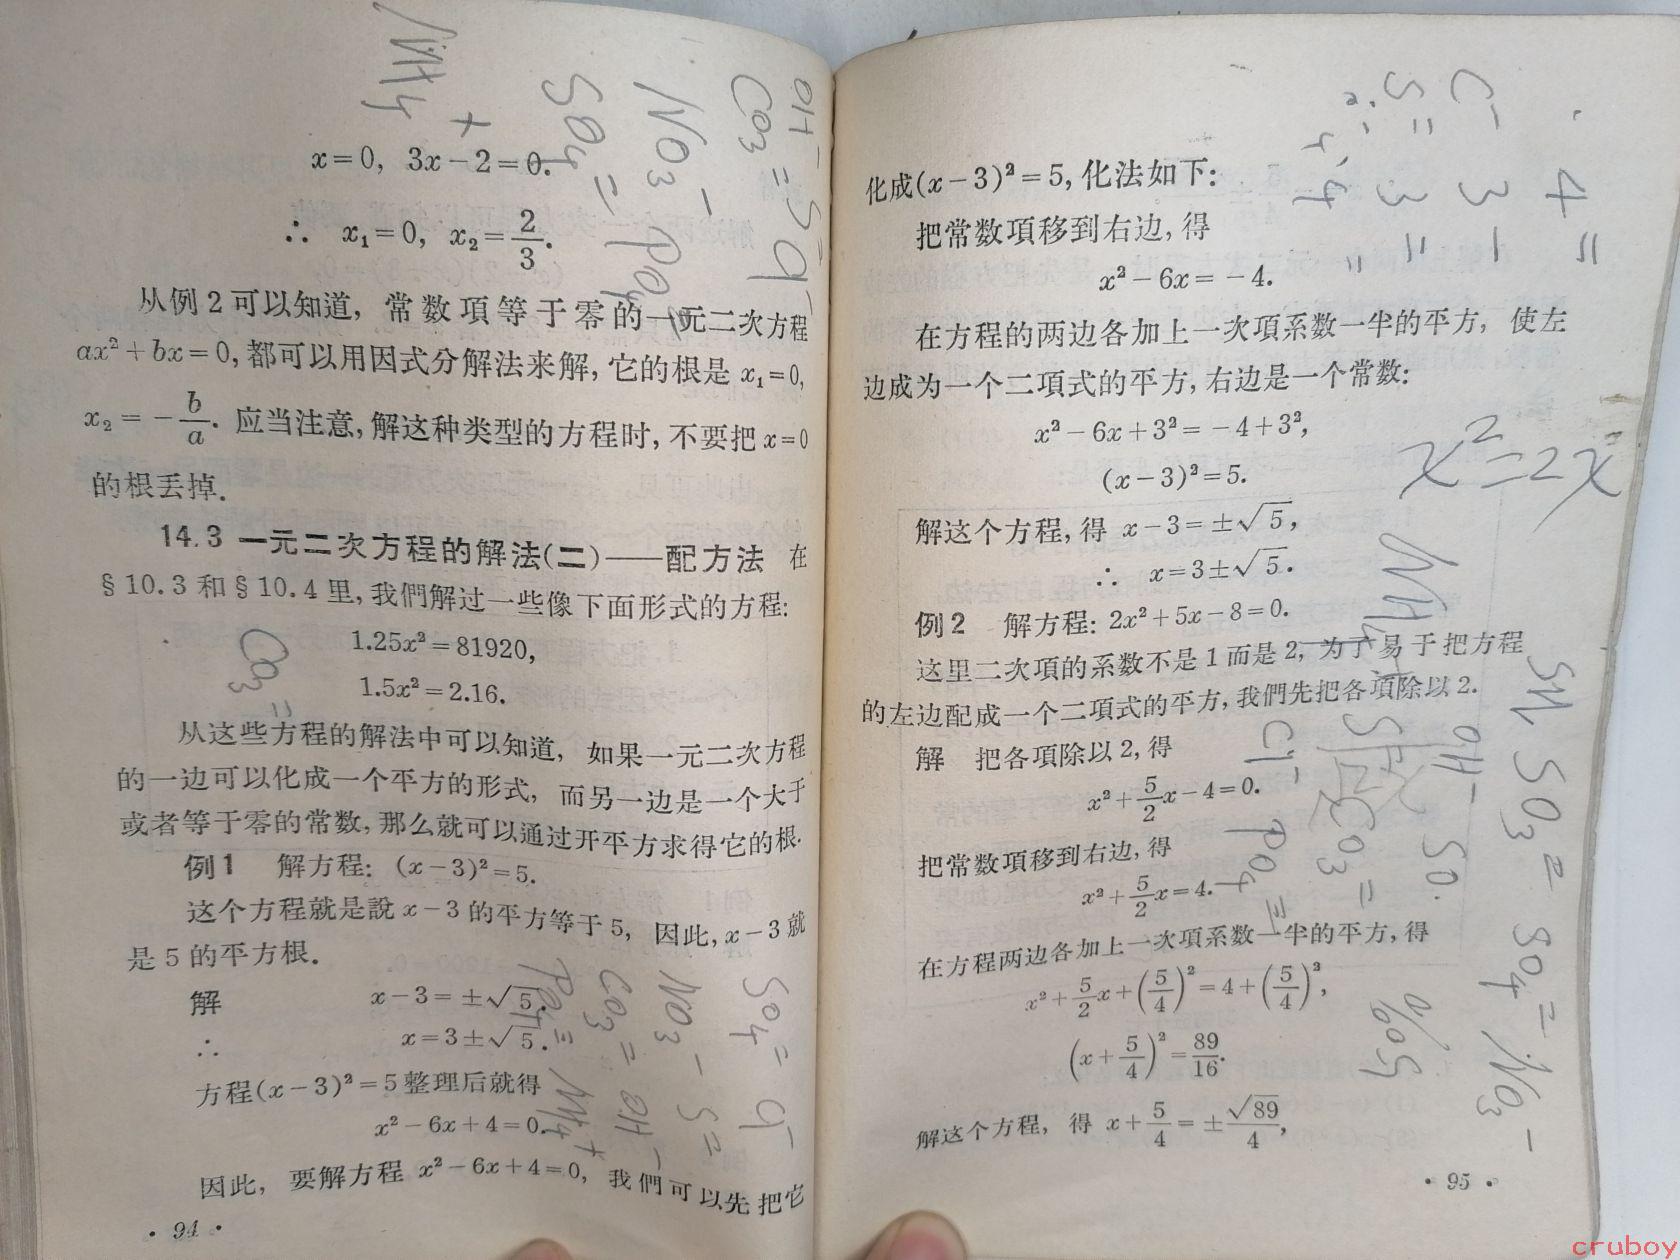 x=0, 3x-2=0.
∴ x₁=0, x₂=2/3.
从例 2 可以知道, 常数項等于零的一元二次方程
ax²+bx=0, 都可以用因式分解法来解, 它的根是 x₁=0,
x₂=-b/a. 应当注意, 解这种类型的方程时, 不要把 x=0
的根丢掉.
14.3 一元二次方程的解法(二)——配方法 在
§10.3 和 §10.4 里, 我們解过一些像下面形式的方程:
1.25x²=81920,
1.5x²=2.16.
从这些方程的解法中可以知道, 如果一元二次方程
的一边可以化成一个平方的形式, 而另一边是一个大于
或者等于零的常数, 那么就可以通过开平方求得它的根.
例1 解方程: (x-3)²=5.
这个方程就是說 x-3 的平方等于 5, 因此, x-3 就
是 5 的平方根.
解 x-3=±√5.
∴ x=3±√5.
方程(x-3)²=5 整理后就得
x²-6x+4=0.
因此, 要解方程 x²-6x+4=0, 我們可以先把它
· 94 ·
NH4 +
SO4 =
NO3 - PO4
OH -
CO3 = S = Cl -
CO3 =
PO4 ≡ NH4 +
CO3 = OH -
NO3 - S =
SO4 = Cl -
化成(x-3)²=5, 化法如下:
把常数項移到右边, 得
x²-6x=-4.
在方程的两边各加上一次項系数一半的平方, 使左
边成为一个二項式的平方, 右边是一个常数:
x²-6x+3²=-4+3²,
(x-3)²=5.
解这个方程, 得 x-3=±√5,
∴ x=3±√5.
例2 解方程: 2x²+5x-8=0.
这里二次項的系数不是 1 而是 2, 为了易于把方程
的左边配成一个二項式的平方, 我們先把各項除以 2.
解 把各項除以 2, 得
x²+5/2x-4=0.
把常数項移到右边, 得
x²+5/2x=4.
在方程两边各加上一次項系数一半的平方, 得
x²+5/2x+(5/4)²=4+(5/4)²,
(x+5/4)²=89/16.
解这个方程, 得 x+5/4=±√89/4,
· 95 ·
x²=2x
Cl - PO4 ≡
CO3 =
OH - SO
SO3 = SO4 = NO3 -
cruboy